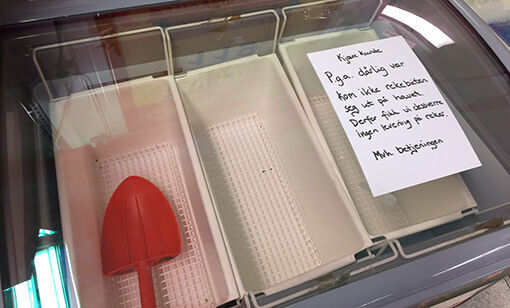 Kjære kunde
P.g.a. dårlig vær
Kom ikke rekebåten
seg ut på havet.
Derfor fikk vi dessverre
ingen levering på reker.
Mvh betjeningen